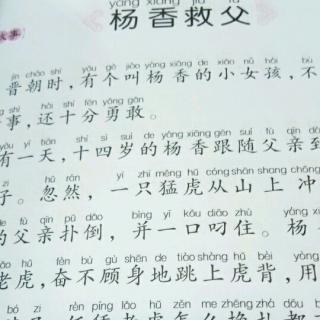 yáng xiāng jiù fù
杨香救父
jìn cháo shí yǒu gè jiào yáng xiāng de xiǎo nǚ hái bù
晋朝时，有个叫杨香的小女孩，不
shì hái shí fēn yǒng gǎn
事，还十分勇敢。
yǒu yì tiān shí sì suì de yáng xiāng gēn suí fù qīn dào
有一天，十四岁的杨香跟随父亲到
zi hū rán yì zhī měng hǔ cóng shān shang chōng
子。忽然，一只猛虎从山上冲
de fù qīn pū dǎo bìng yì kǒu diāo zhù yáng
的父亲扑倒，并一口叼住。杨
lǎo hǔ fèn bù gù shēn de tiào shàng hǔ bèi yòng
老虎，奋不顾身地跳上虎背，用
bó zi rèn píng lǎo hǔ zěn me zhēng zhá dōu